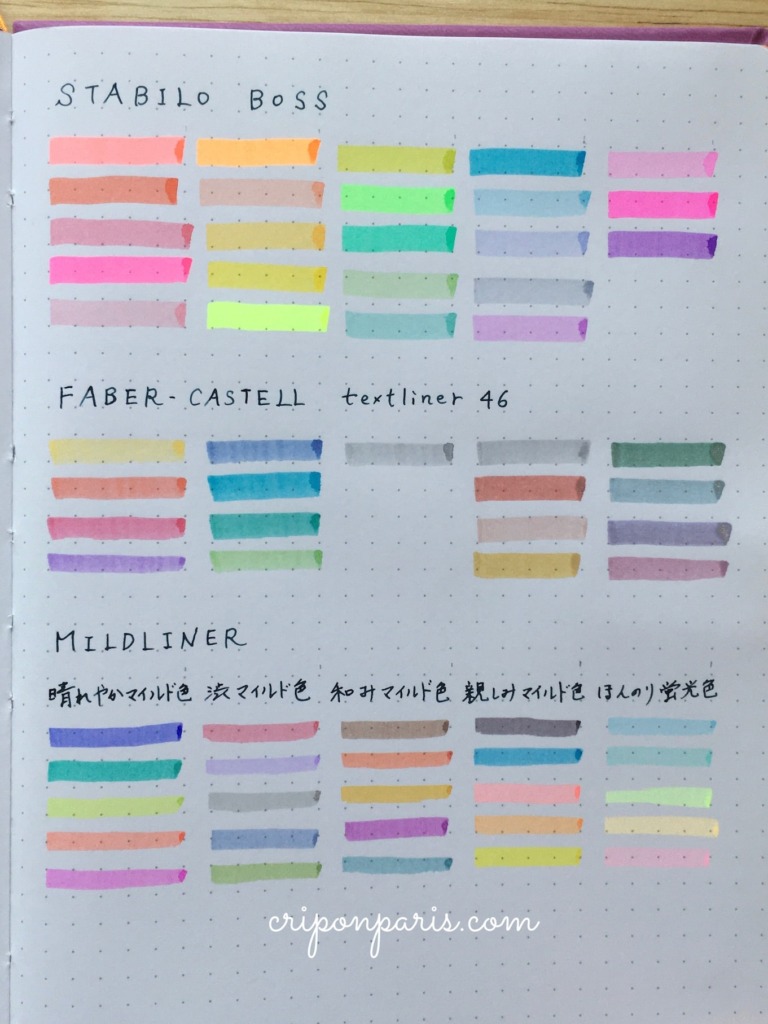 STABILO BOSS
FABER-CASTELL textliner 46
MILDLINER
晴れやかマイルド色 渋マイルド色 和みマイルド色 親しみマイルド色 ほんのり蛍光色
criponparis.com